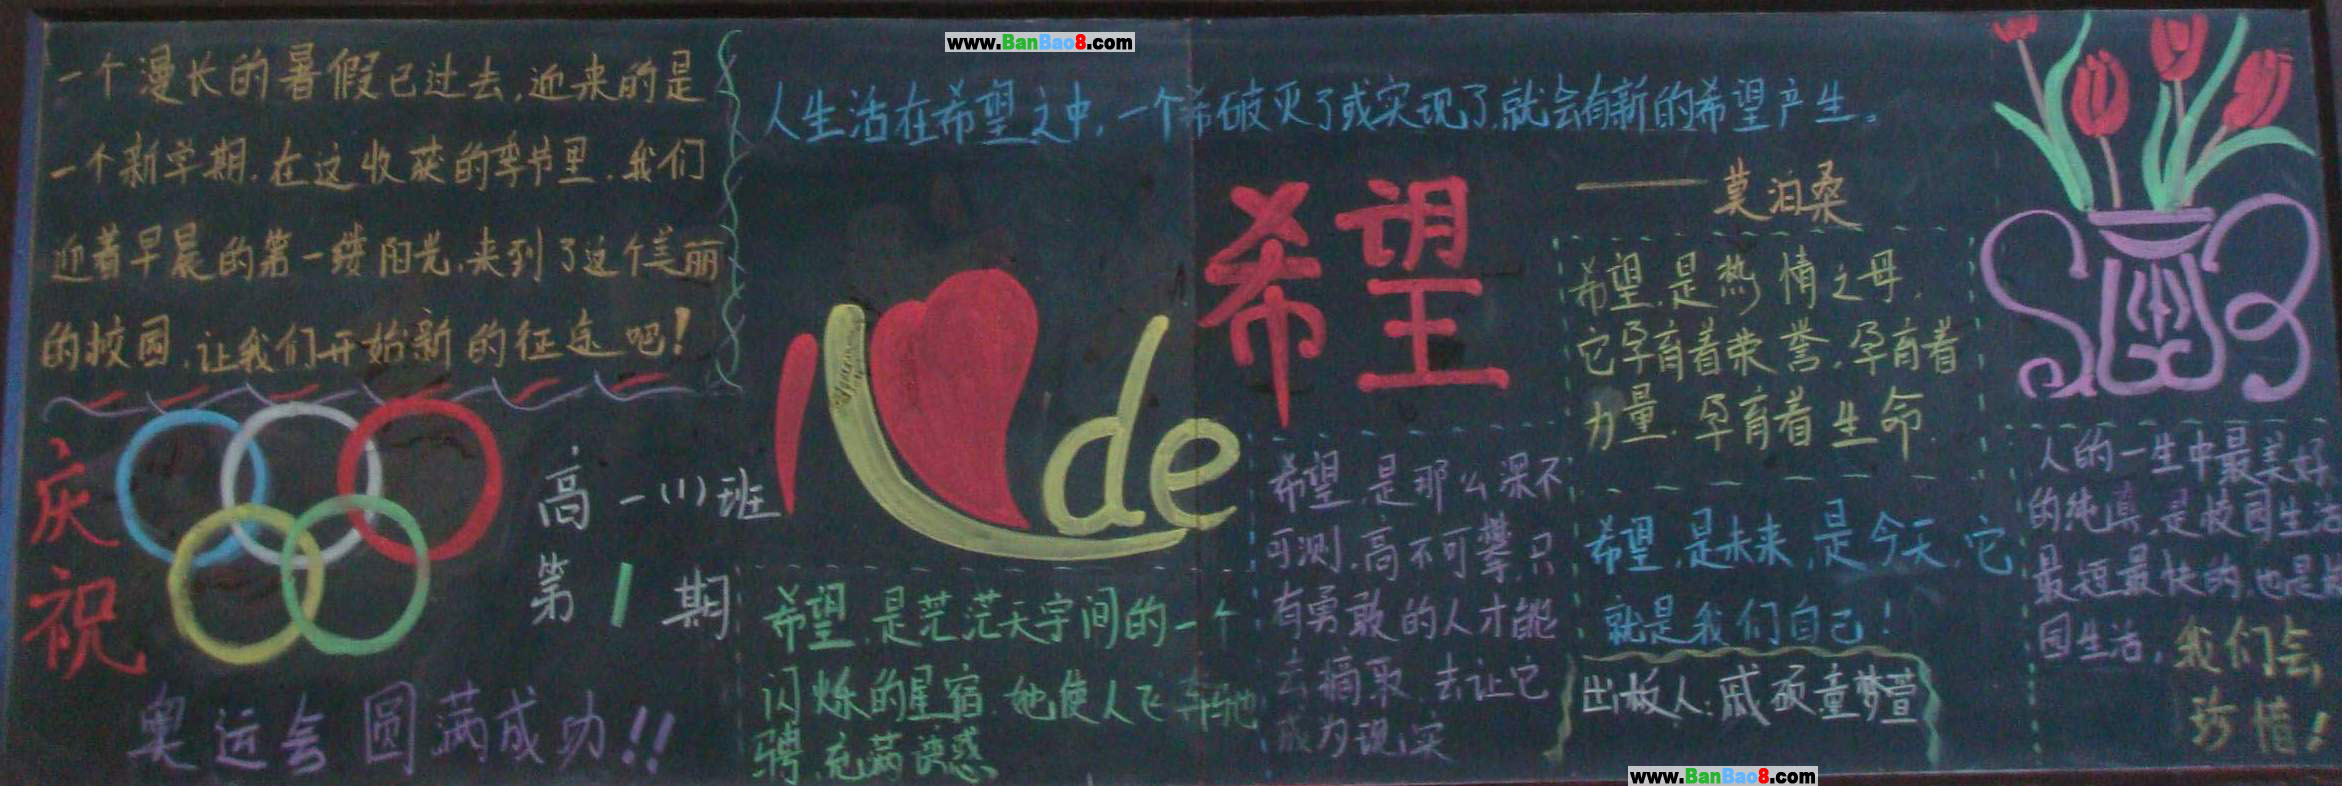 www.BanBao8.com
一个漫长的暑假已过去,迎来的是
一个新学期.在这收获的季节里.我们
迎着早晨的第一缕阳光.来到了这个美丽
的校园.让我们开始新的征途吧!
庆祝
奥运会圆满成功!!
高一(1)班
第1期
人生活在希望之中,一个希破灭了或实现了,就会有新的希望产生。
——莫泊桑
心de
希望
希望.是茫茫天宇间的一个
闪烁的星宿.她使人飞
骋.充满诱惑
希望.是那么深不
可测.高不可攀.只
有勇敢的人才能
去摘取.去让它
成为现实
希望.是热情之母.
它孕育着荣誉.孕育着
力量.孕育着生命.
希望.是未来.是今天.它
就是我们自己!
出板人:戚硕.童梦萱
人的一生中最美好
的纯真.是校园生活
最短最快的.也是
园生活.我们会
珍惜!
www.BanBao8.com